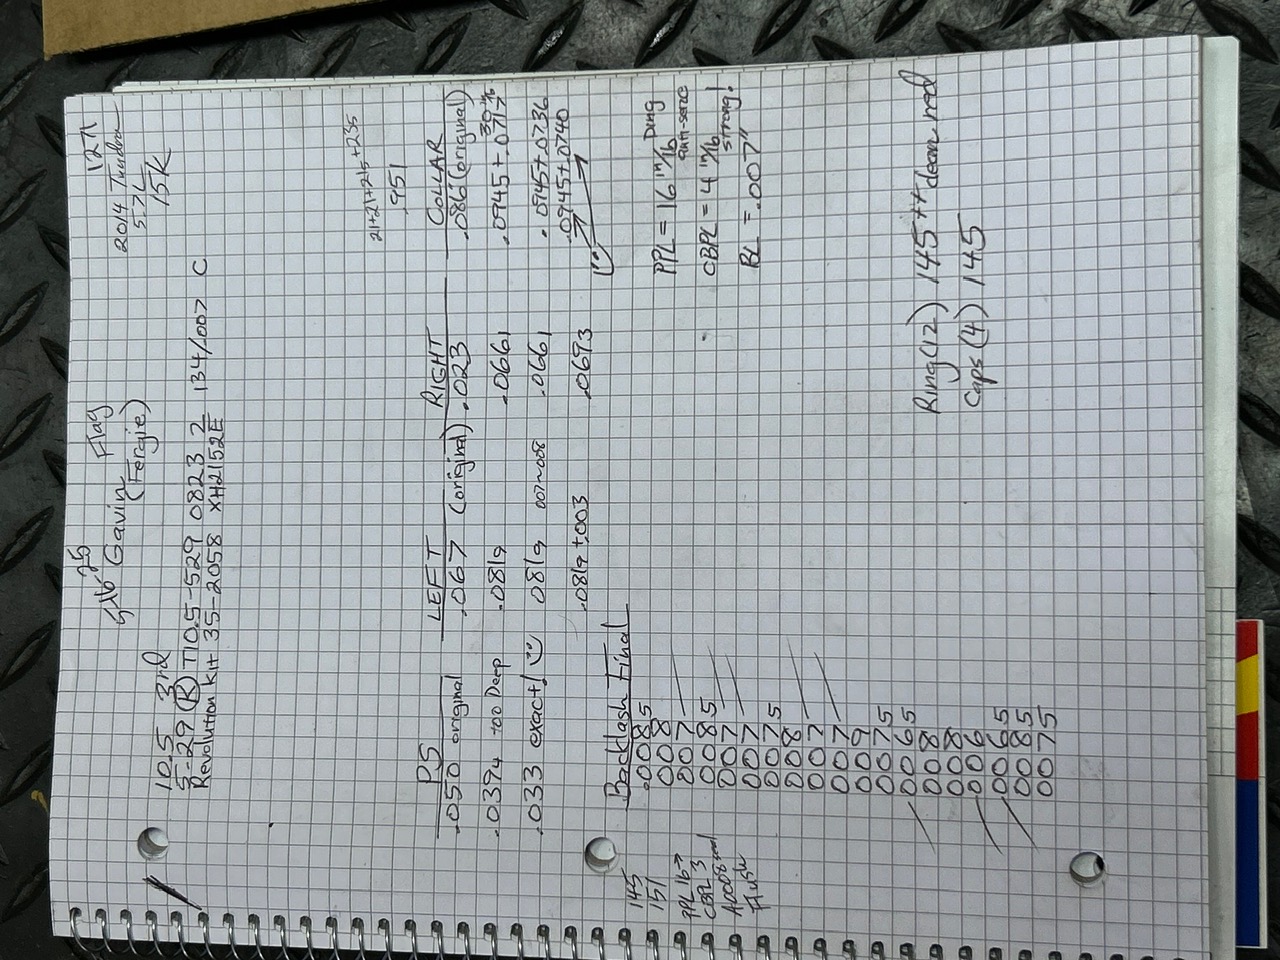 25
Gavin Flag 1271
(Fergie) 2014 Tundra
5.7L
15K
10.5 3rd
5-29 (R) T10.5-529 0823 2 134/.007 C
Revolution Kit 35-2058 XH2152E
21+21+215+235
.951
PS LEFT RIGHT COLLAR
.050 original .067 (original) .023 .086 (original)
.0394 too Deep .0819 .0661 .0945+.0717
.033 exact! 0819 007~008 .0661 .0945+.0736
.0819+.003 .0693 .0945+.0740
Backlash Final
.0085
008
007
0085
007
007
0075
008
007
007
009
0075
0065
008
008
006
0065
0085
0075
145
151
PPL 16
CBPL 3
Flush
PPL = 16 in/lb Ding
CBPL = 4 in/lb
strong!
BL = .007"
Ring (12) 145++ clean red
Caps (4) 145